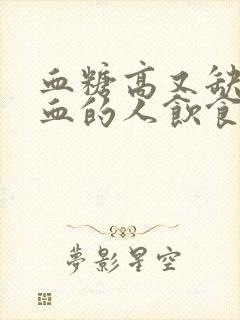 血糖高又缺
血的人飲食
夢影星空